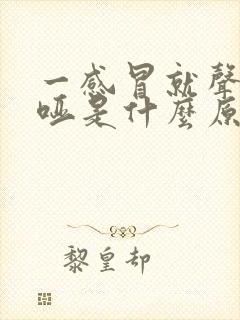 一感冒就聲
啞是什麼原
黎皇却